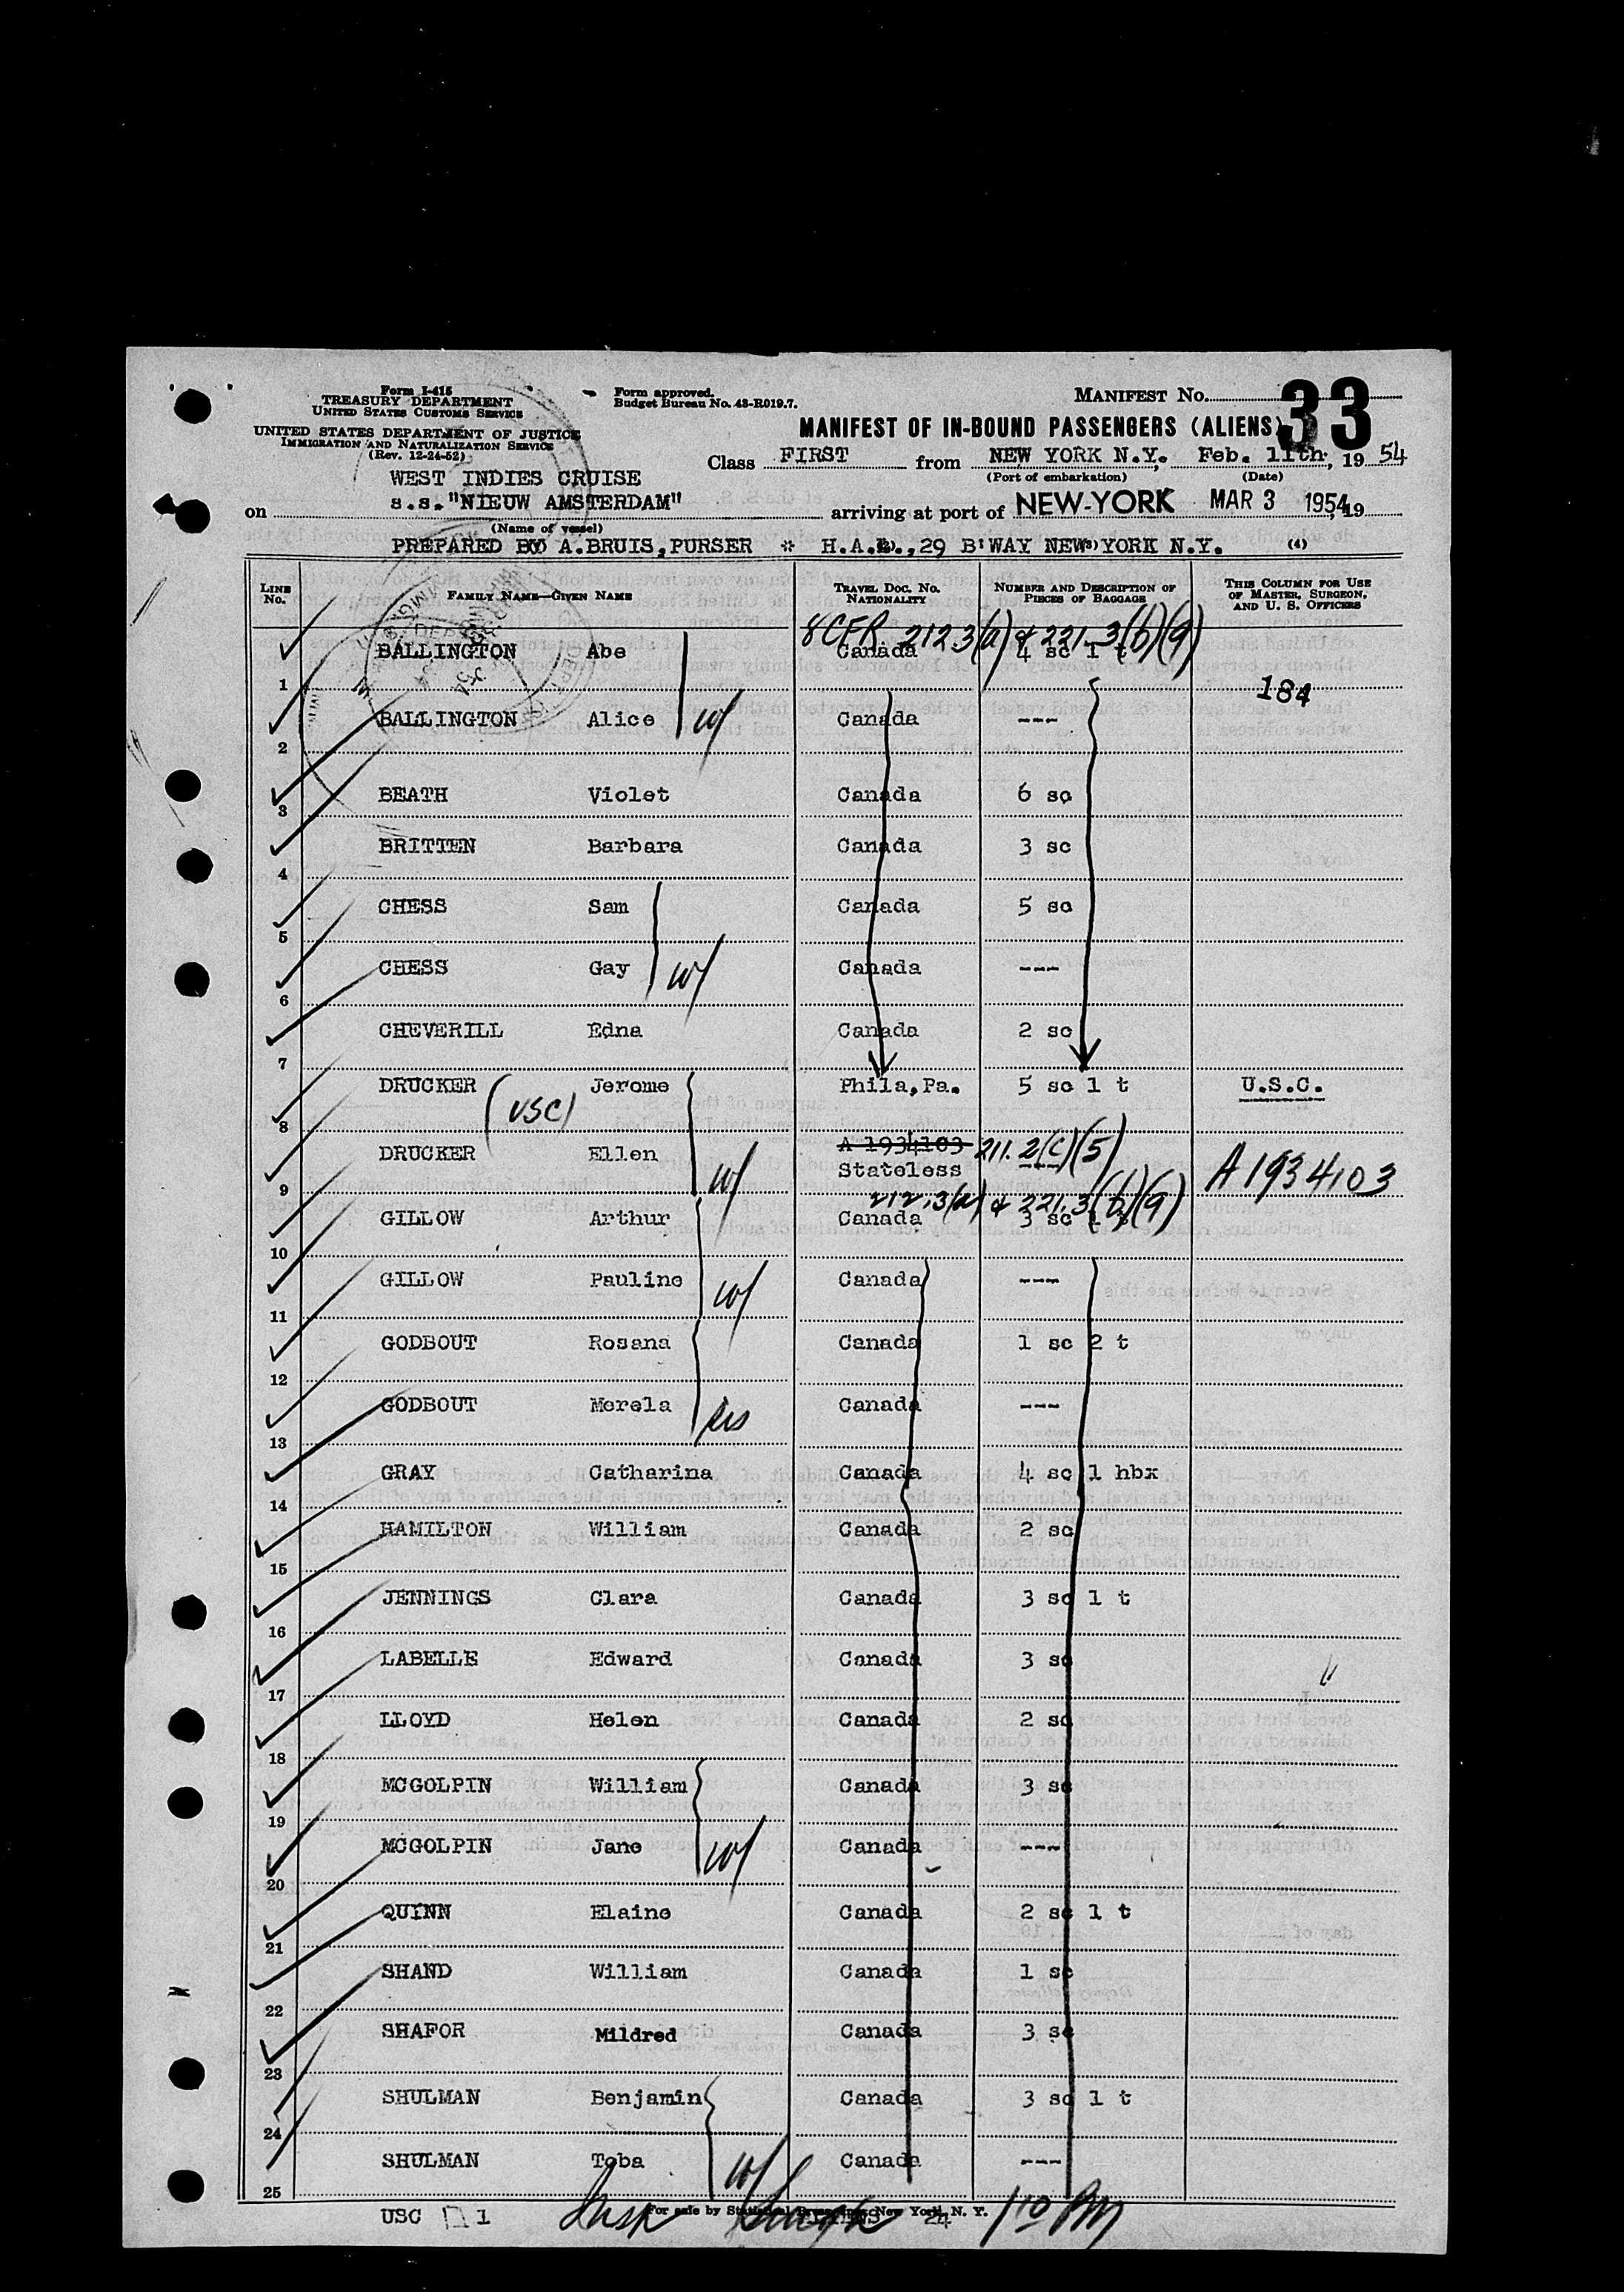 Form I-415
TREASURY DEPARTMENT
UNITED STATES CUSTOMS SERVICE
UNITED STATES DEPARTMENT OF JUSTICE
IMMIGRATION AND NATURALIZATION SERVICE
(Rev. 12-24-52)
Form approved.
Budget Bureau No. 43-R019.7.
MANIFEST No. 33
MANIFEST OF IN-BOUND PASSENGERS (ALIENS)
Class FIRST from NEW YORK N.Y. Feb. 11th, 19 54
(Port of embarkation) (Date)
WEST INDIES CRUISE
on s.s. "NIEUW AMSTERDAM" arriving at port of NEW-YORK MAR 3 1954, 19
(Name of vessel)
PREPARED BY A.BRUIS, PURSER * H.A.L., 29 B'WAY NEW YORK N.Y. (4)
LINE No. FAMILY NAME—GIVEN NAME TRAVEL DOC. NO. NATIONALITY NUMBER AND DESCRIPTION OF PIECES OF BAGGAGE THIS COLUMN FOR USE OF MASTER, SURGEON, AND U. S. OFFICERS
8 CFR 212.3(a) & 221.3(b)(9)
1 BALLINGTON Abe Canada 4 sc 1 t 184
2 BALLINGTON Alice w/ Canada ---
3 BEATH Violet Canada 6 sc
4 BRITTEN Barbara Canada 3 sc
5 CHESS Sam Canada 5 sc
6 CHESS Gay w/ Canada ---
7 CHEVERILL Edna Canada 2 sc
8 DRUCKER (USC) Jerome Phila,Pa. 5 sc 1 t U.S.C.
9 DRUCKER Ellen w/ A 1934103 Stateless 211.2(c)(5) A 1934103
212.3(a) & 221.3(b)(9)
10 GILLOW Arthur Canada 3 sc 1 t
11 GILLOW Pauline w/ Canada ---
12 GODBOUT Rosana Canada 1 sc 2 t
13 GODBOUT Merela sis Canada ---
14 GRAY Catharina Canada 4 sc 1 hbx
15 HAMILTON William Canada 2 sc
16 JENNINGS Clara Canada 3 sc 1 t
17 LABELLE Edward Canada 3 sc
18 LLOYD Helen Canada 2 sc
19 MCGOLPIN William Canada 3 sc
20 MCGOLPIN Jane w/ Canada ---
21 QUINN Elaine Canada 2 sc 1 t
22 SHAND William Canada 1 sc
23 SHAFOR Mildred Canada 3 sc
24 SHULMAN Benjamin Canada 3 sc 1 t
25 SHULMAN Toba w/ Canada ---
For sale by New York, N. Y.
USC 1 24 1 10 PM